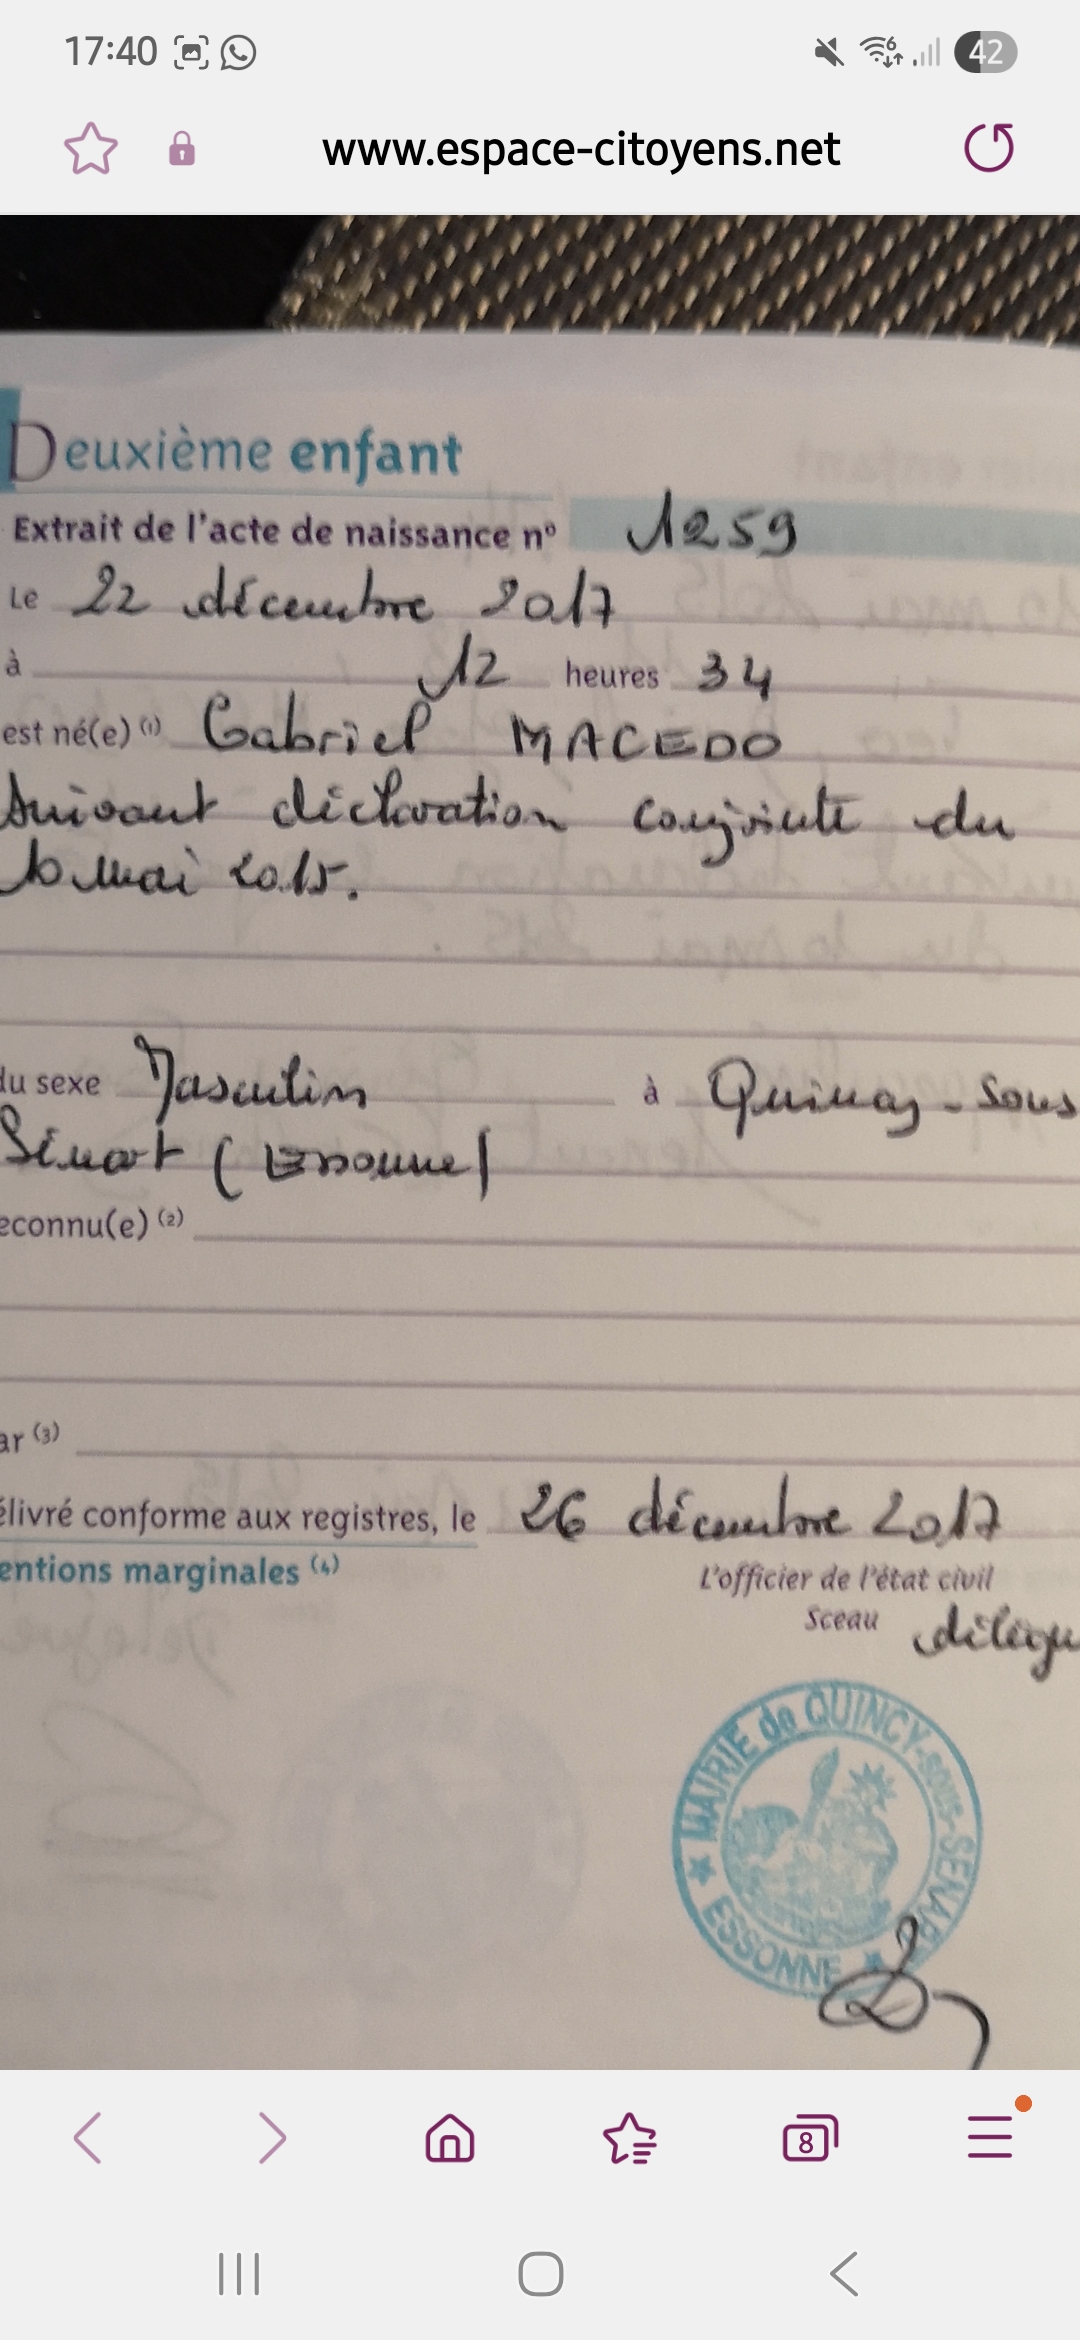 17:40
42
www.espace-citoyens.net
Deuxième enfant
Extrait de l'acte de naissance nº 1259
Le 22 décembre 2017
à 12 heures 34
est né(e) (1) Gabriel MACEDO
Suivant déclaration conjointe du
10 mai 2015.
du sexe Masculin à Quincy-sous
Sénart (Essonne)
econnu(e) (2)
ar (3)
élivré conforme aux registres, le 26 décembre 2017
entions marginales (4)
L'officier de l'état civil
Sceau délégu
MAIRIE de QUINCY-SOUS-SENAR
ESSONNE
8